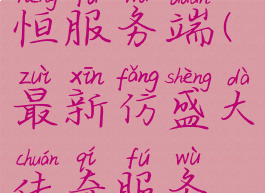 恒服务端(
zuì xīn fǎng shèng dà
最新仿盛大
chuán qí fú wù
传奇服务